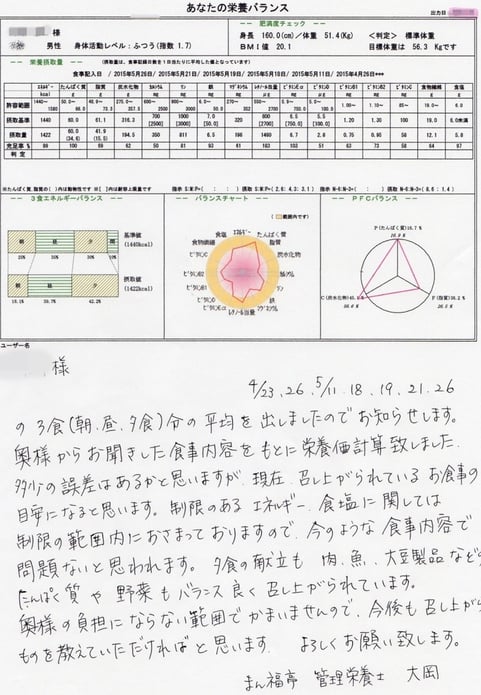 あなたの栄養バランス
出力日
様
男性 身体活動レベル：ふつう（指数 1.7）
－－ 肥満度チェック －－
身長 160.0(cm)／体重 51.4(Kg) ＜判定＞ 標準体重
BMI値 20.1 目標体重は 56.3 Kgです
－－ 栄養摂取量 －－
食事記入日 / 2015月5月26日/2015年5月21日/2015年5月19日/2015年5月18日/2015年5月11日/2015年4月26日***
エネルギー たんぱく質 脂質 炭水化物 カルシウム リン 鉄 マグネシウム レチノール当量 ビタミンD ビタミンB1 ビタミンB2 ビタミンC 食物繊維 食塩
許容範囲
摂取基準 1440 60.0 61.1 216.3 700 [2500] 1000 [3000] 7.0 [50.0] 320 800 6.5 5.5 [100.0] 1.20 1.30 100 19.0 6.0未満
摂取量 1422 60.0 (34.6) 41.9 (15.5) 194.5 350 811 6.5 196 1460 6.7 2.8 0.75 0.95 58 12.1 5.8
充足率 % 99 100 69 90 50 81 93 61 183 103 51 63 73 58 64 97
判 定
－－ 3食エネルギーバランス －－
基準値
(1440kcal)
朝 昼 夕 間
摂取値
(1422kcal)
朝 昼 夕
18.1% 39.7% 42.2%
－－ バランスチャート －－
エネルギー
たんぱく質
脂質
炭水化物
カルシウム
リン
鉄
マグネシウム
レチノール当量
ビタミンD
ビタミンB1
ビタミンB2
ビタミンC
食物繊維
食塩
－－ PFCバランス －－
P(たんぱく質)
C(炭水化物)
F(脂質)
ユーザー名
様
4/23、26、5/11、18、19、21、26
の3食(朝、昼、夕食)分の平均を出しましたのでお知らせします。
奥様からお聞きした食事内容をもとに栄養価計算致しました。
多少の誤差はあるかと思いますが、現在、召し上がられているお食事の
目安になると思います。制限のあるエネルギー、食塩に関しては
制限の範囲内におさまっておりますので、今のような食事内容で
問題ないと思われます。夕食の献立も肉、魚、大豆製品など
たんぱく質や野菜もバランス良く召し上がられています。
奥様の負担にならない範囲でかまいませんので、今後も召し上がら
ものを教えていただければと思います。よろしくお願い致します。
まん福亭 管理栄養士 大岡